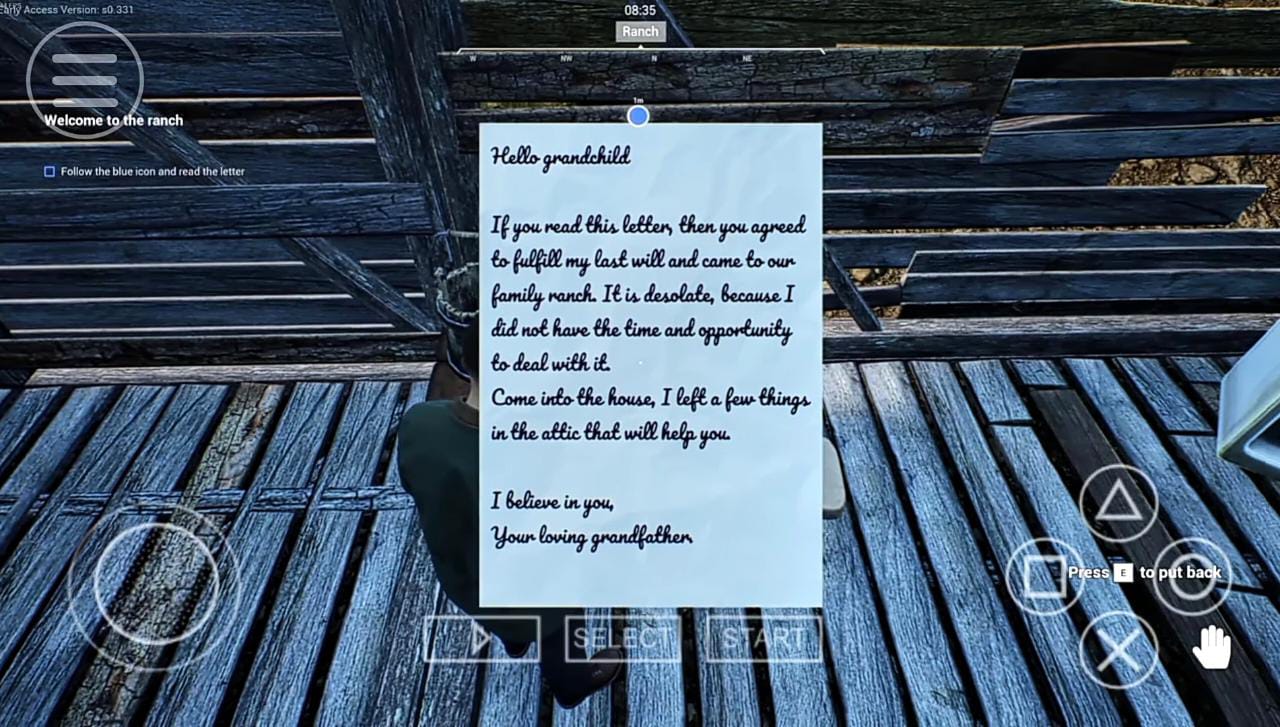 Early Access Version: s0.331
08:35
Ranch
W NW N NE
1m
Welcome to the ranch
Follow the blue icon and read the letter
Hello grandchild
If you read this letter, then you agreed
to fulfill my last will and came to our
family ranch. It is desolate, because I
did not have the time and opportunity
to deal with it.
Come into the house, I left a few things
in the attic that will help you.
I believe in you,
Your loving grandfather.
Press E to put back
SELECT START